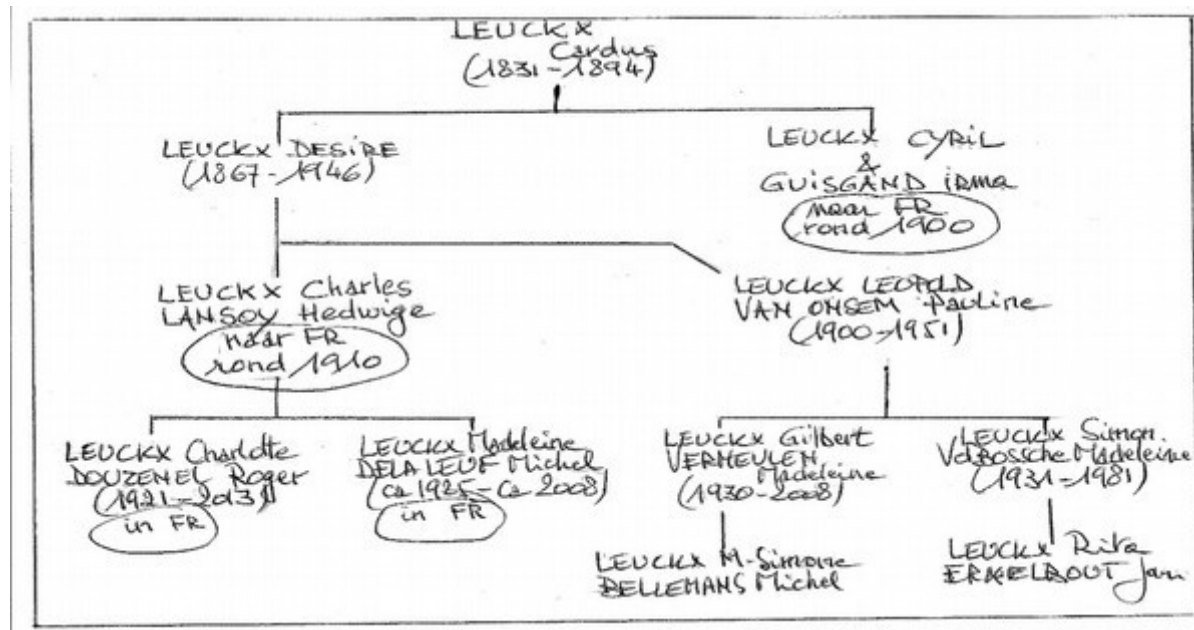 LEUCKX
Cardus
(1831-1894)
LEUCKX DESIRE
(1867-1946)
LEUCKX CYRIL
&
GUISGAND irma
naar FR
rond 1900
LEUCKX Charles
LANSOY Hedwige
naar FR
rond 1910
LEUCKX LEOPOLD
VAN ONSEM Pauline
(1900-1951)
LEUCKX Charlotte
DOUZENEL Roger
(1921-2013)
in FR
LEUCKX Madeleine
DELALEUF Michel
(ca 1925-Ca 2008)
in FR
LEUCKX Gilbert
VERMEULEN
Madeleine
(1930-2008)
LEUCKX Simon.
VdBossche Madeleine
(1931-1981)
LEUCKX M-Simone
BELLEMANS Michel
LEUCKX Rita
Jan